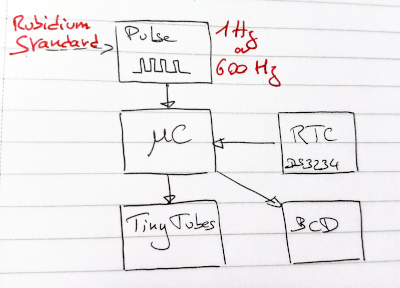 Rubidium
Standard
Pulse
1Hg
or
600Hz
μC
RTC
DS3234
Tiny Tubes
BCD